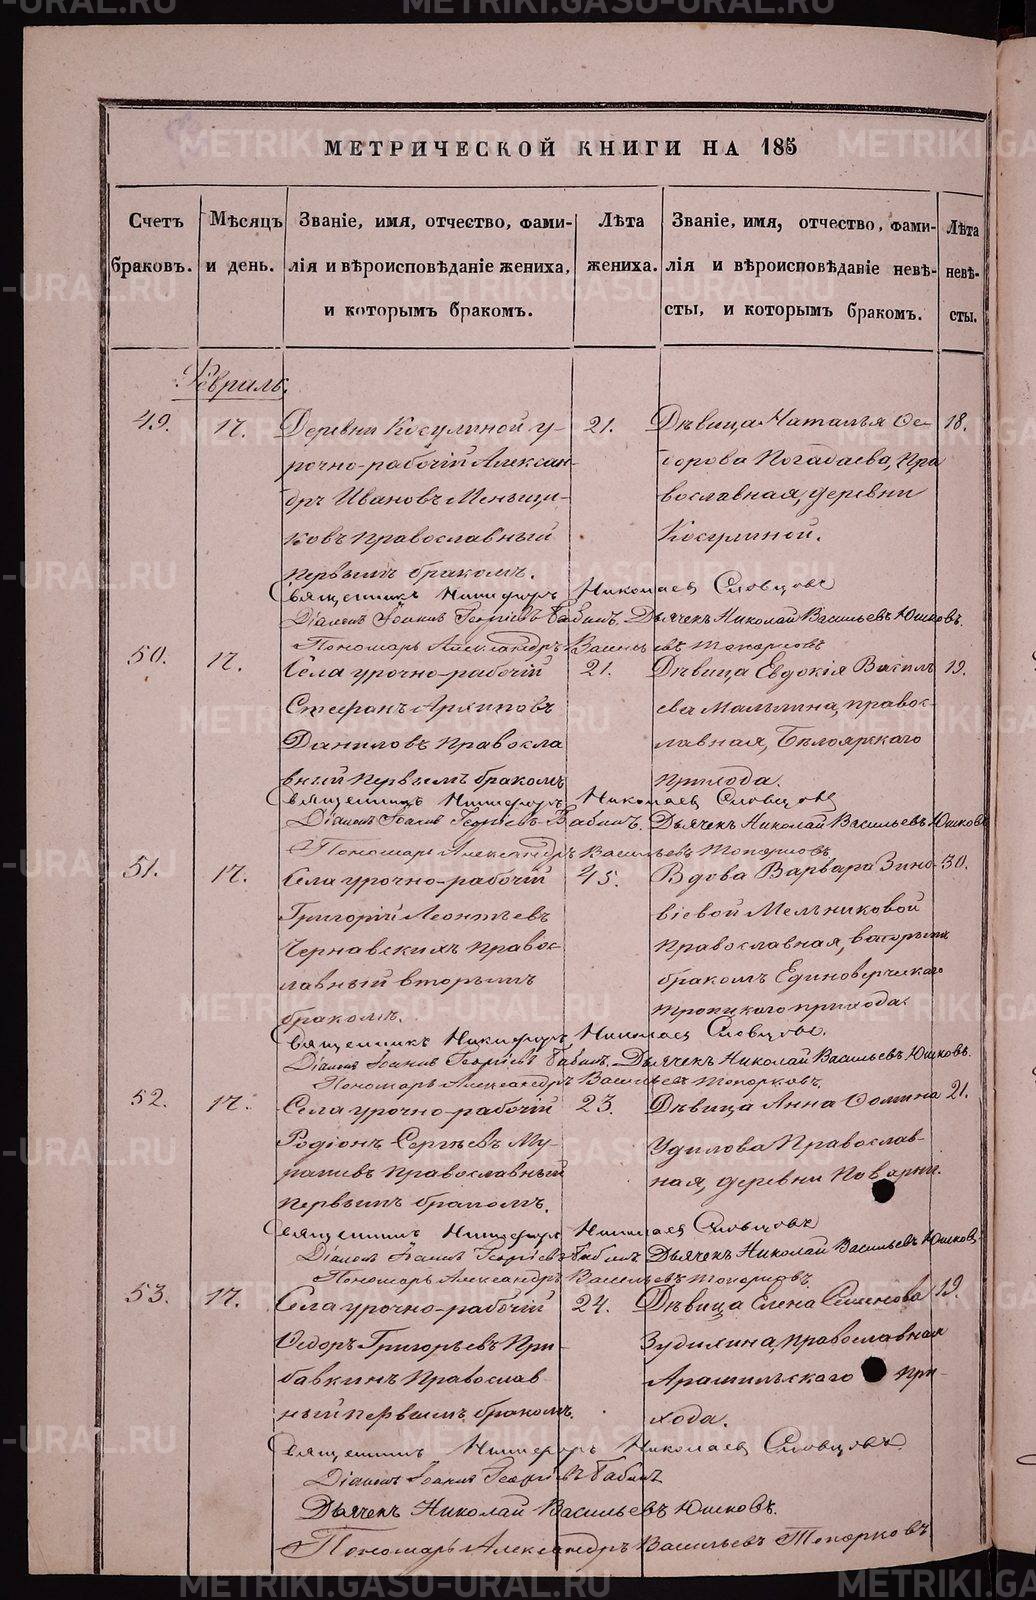 МЕТРИЧЕСКОЙ КНИГИ НА 185
Счетъ браковъ.
Мѣсяцъ и день.
Званіе, имя, отчество, фами-
лія и вѣроисповѣданіе жениха,
и которымъ бракомъ.
Лѣта жениха.
Званіе, имя, отчество, фами-
лія и вѣроисповѣданіе невѣ-
сты, и которымъ бракомъ.
Лѣта невѣ-
сты.
Февраль.
49. 17. Деревни Косулиной у- 21. Дѣвица Наталья Ѳе- 18.
рочно-рабочій Алексан- дорова Погадаева, пра
дръ Ивановъ Меньщи- вославная, деревни
ковъ православный Косулиной.
первымъ бракомъ.
Священникъ Никифоръ Николаевъ Словцовъ
Діаконъ Іоаннъ Георгіевъ Бабинъ. Дьячекъ Николай Васильевъ Юшковъ.
Пономарь Александръ Васильевъ Топорковъ
50. 17. Села урочно-рабочій 21. Дѣвица Евдокія Василь 19.
Стефанъ Архиповъ ева Малыгина, правос-
Даниловъ правосла лавная, Бѣлоярскаго
вный первымъ бракомъ прихода.
Священникъ Никифоръ Николаевъ Словцовъ
Діаконъ Іоаннъ Георгіевъ Бабинъ. Дьячекъ Николай Васильевъ Юшковъ
Пономарь Александръ Васильевъ Топорковъ
51. 17. Села урочно-рабочій 45. Вдова Варвара Зино- 30.
Григорій Леонтьевъ віевой Мельниковой
Чернавскихъ правос- православная, вторымъ
лавный вторымъ бракомъ Единоверческаго
бракомъ. троицкаго прихода.
Священникъ Никифоръ Николаевъ Словцовъ.
Діаконъ Іоаннъ Георгіевъ Бабинъ. Дьячекъ Николай Васильевъ Юшковъ.
Пономарь Александръ Васильевъ Топорковъ.
52. 17. Села урочно-рабочій 23. Дѣвица Анна Ѳомина 21.
Родіонъ Сергѣевъ Му- Удилова Православ-
православный ная, деревни
первымъ бракомъ.
Священникъ Никифоръ Николаевъ Словцовъ
Діаконъ Іоаннъ Георгіевъ Бабинъ Дьячекъ Николай Васильевъ Юшковъ.
Пономарь Александръ Васильевъ Топорковъ.
53. 17. Села урочно-рабочій 24. Дѣвица Елена Семенова 19.
Ѳедоръ Григорьевъ При- Зудихина, православная
бавкинъ Православ- Арамильскаго при-
ный первымъ бракомъ. хода.
Священникъ Никифоръ Николаевъ Словцовъ.
Діаконъ Іоаннъ Георгіевъ Бабинъ
Дьячекъ Николай Васильевъ Юшковъ.
Пономарь Александръ Васильевъ Топорковъ
METRIKI.GASO-URAL.RU